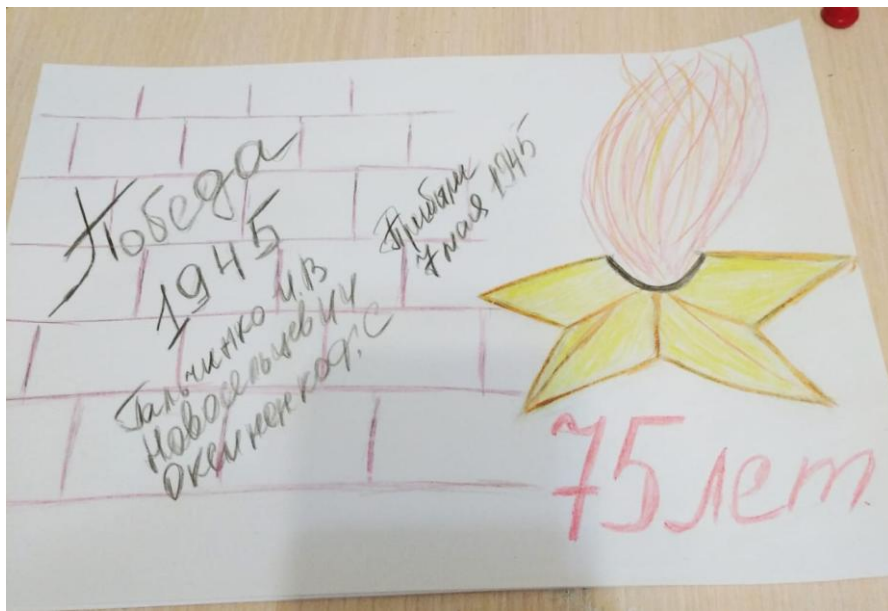 Победа
1945
Гальчинко И.В
Новосельцевич
Оксиненко Ф.С
Прибыли
7 мая 1945
75 лет